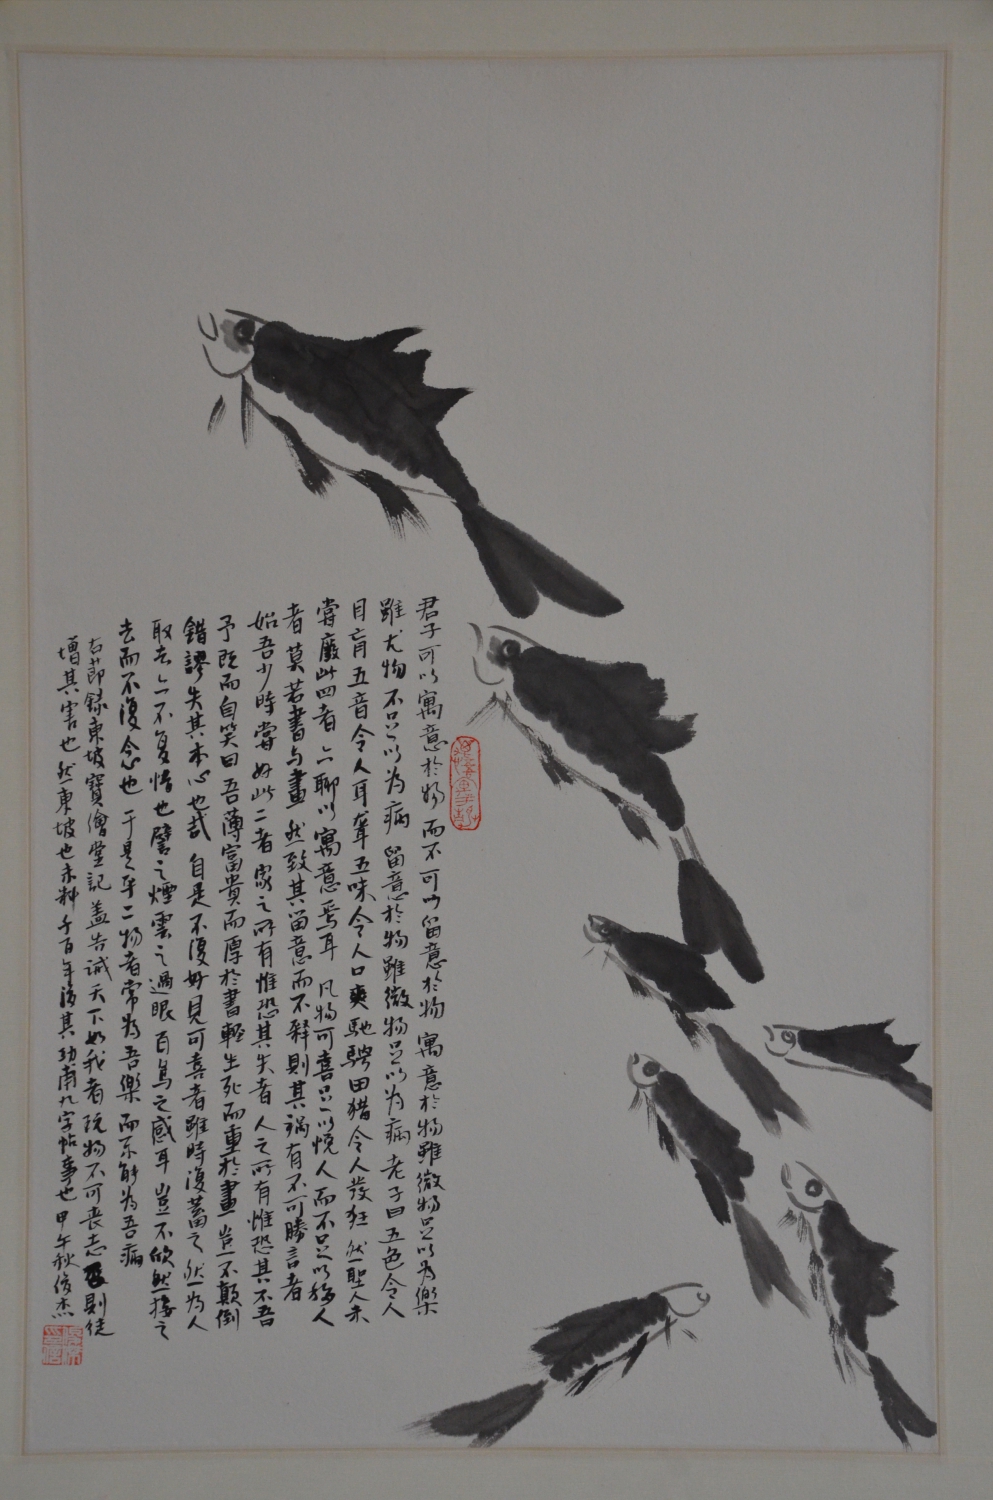 君子可以寓意於物而不可以留意於物寓意於物雖微物足以為樂
雖尤物不足以為病留意於物雖微物足以為病老子曰五色令人
目盲五音令人耳聾五味令人口爽馳騁田猎令人發狂然聖人未
嘗廢此四者亦聊以寓意焉耳凡物可喜足以悅人而不足以移人
者莫若書与畫然致其留意而不釋則其禍有不可勝言者
始吾少時嘗好此二者家之所有惟恐其失者人之所有惟恐其不吾
予既而自笑曰吾薄富貴而厚於書輕生死而重於畫豈不顛倒
錯謬失其本心也哉自是不復好見可喜者雖時復蓄之然為人
取去亦不复惜也譬之煙雲之過眼百鸟之感耳豈不欣然接之
去而不復念也于是乎二物者常为吾樂而不能为吾病
右节録東坡寶繪堂記盖告诫天下如我者玩物不可丧志否則徒
增其害也然東坡也未料千百年後其功甫九字帖事也甲午秋俊杰